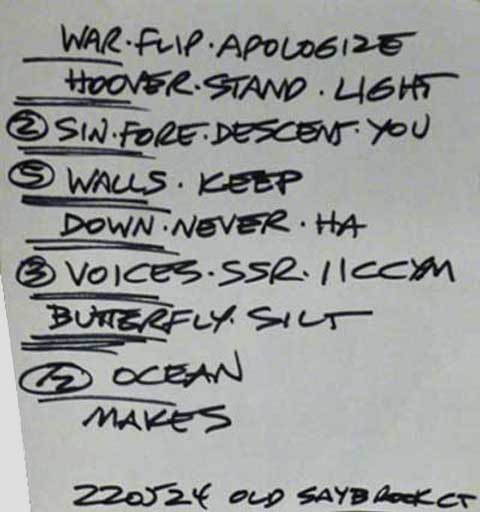 WAR · FLIP · APOLOGIZE
HOOVER · STAND · LIGHT
② SIN · FORE · DESCENT · YOU
⑤ WALLS · KEEP
DOWN · NEVER · HA
③ VOICES · SSR · 11CCYM
BUTTERFLY · SILT
⑫ OCEAN
MAKES
220524 OLD SAYBROOK CT